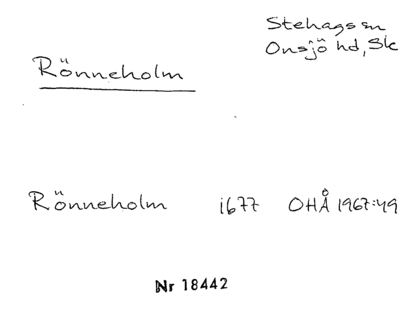 Stehags sn
Onsjö hd, Sk
Rönneholm
Rönneholm 1677 OHÅ 1967:49
Nr 18442